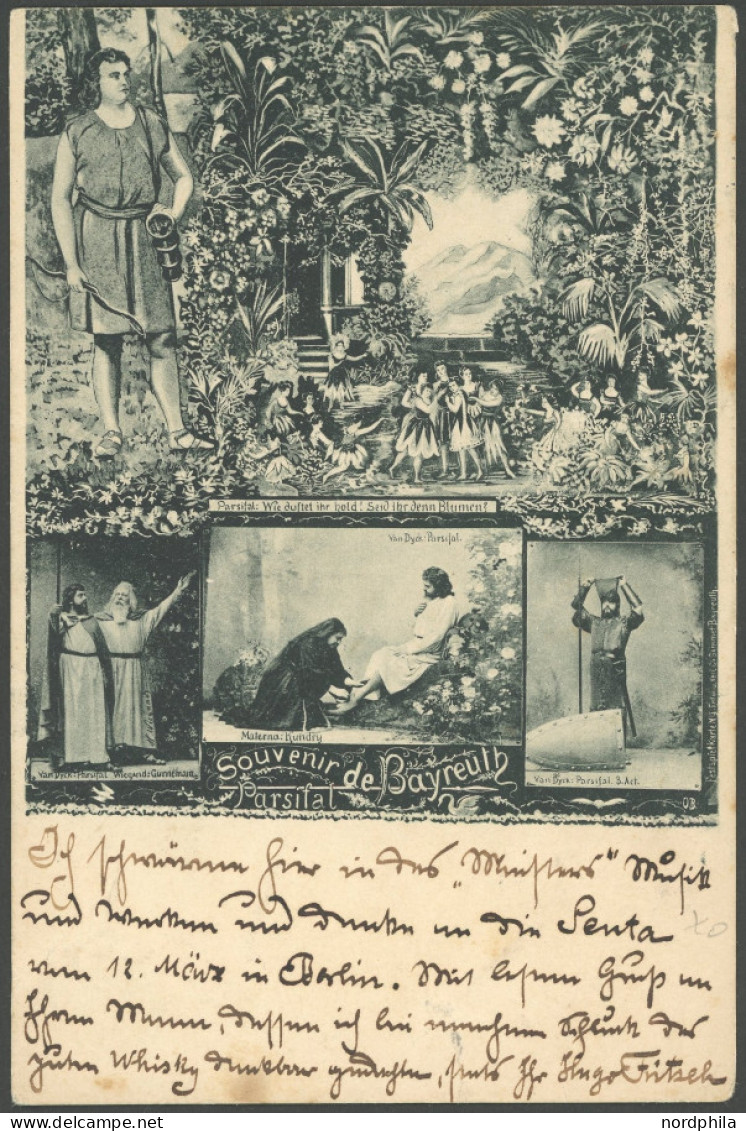 Parsifal: Wie duftet ihr hold! Seid ihr denn Blumen?
Van Dyck: Parsifal.
Materna: Kundry
Van Dyck: Parsifal Wiegand: Gurnemanz
Van Dyck: Parsifal. 3. Act.
Souvenir de Bayreuth
Parsifal
OB
Ich schwärme hier in des „Meisters“ Musik
und Werken und denke an die Senta
vom 12. März in Berlin. Mit bestem Gruß an
Ihren Mann, dessen ich bei manchem Schluck des
guten Whisky dankbar gedachte, stets Ihr Hugo Fritsch
nordphila